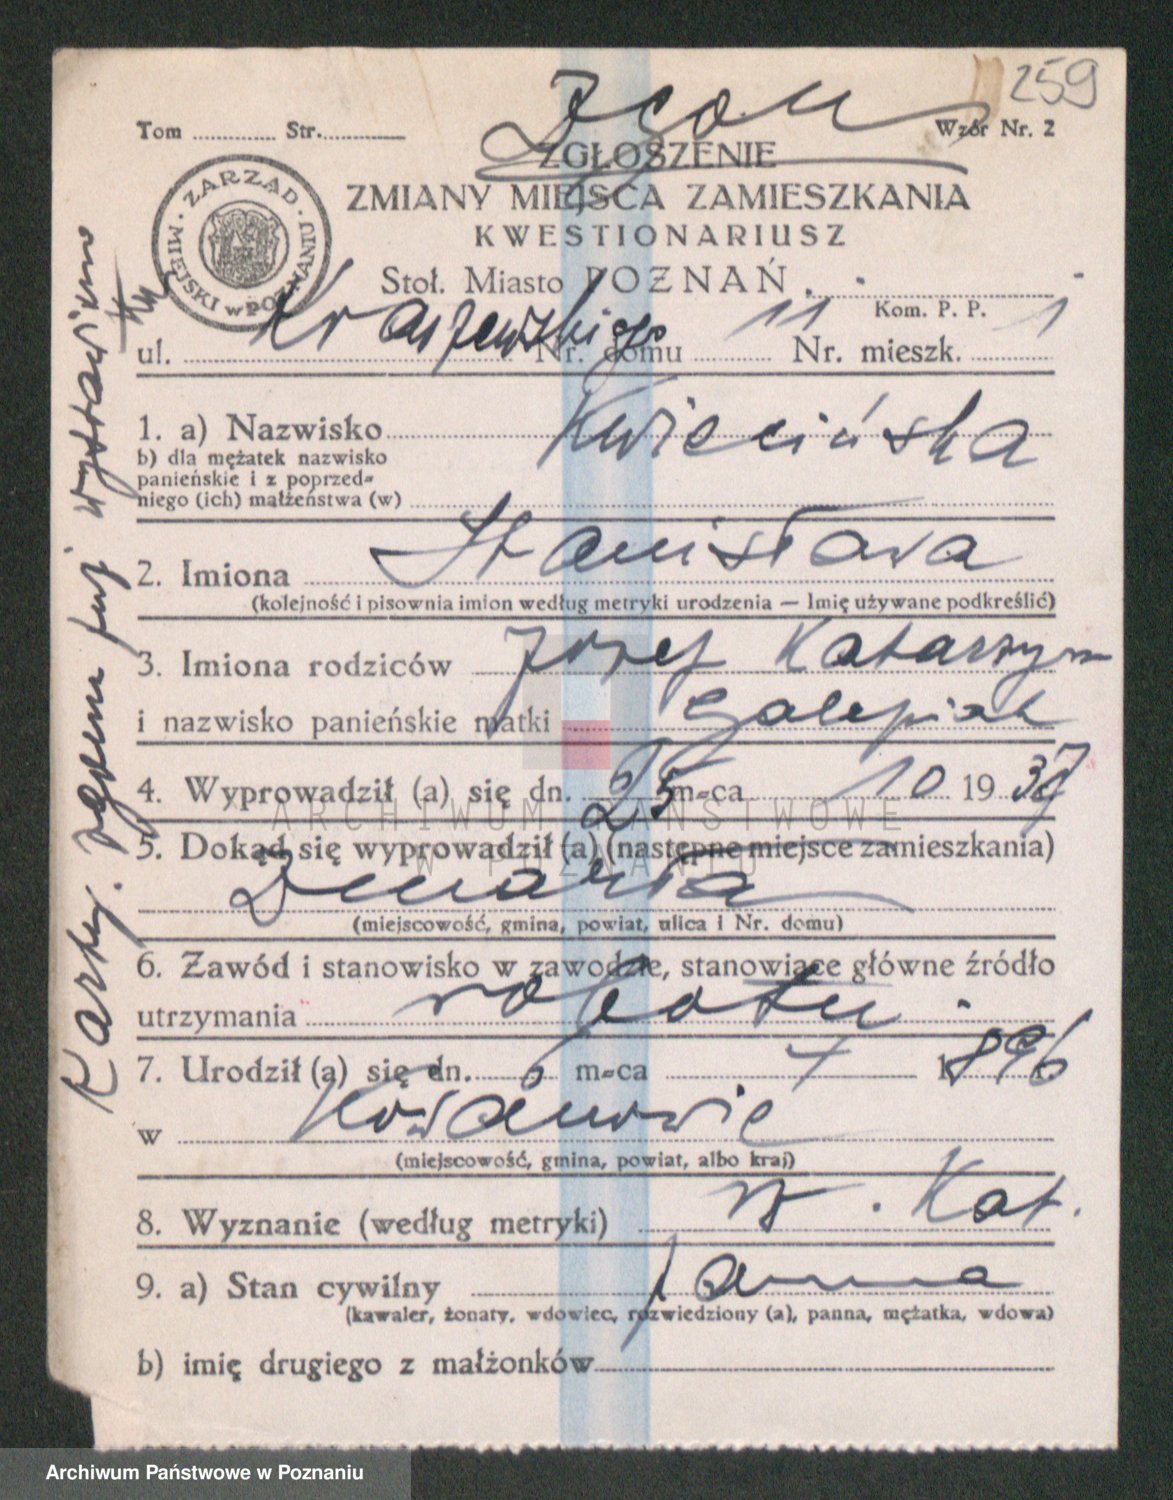 259
Zgon
Tom ............ Str. ............ Wzór Nr. 2
ZGŁOSZENIE
ZMIANY MIEJSCA ZAMIESZKANIA
KWESTIONARIUSZ
Stoł. Miasto POZNAŃ
ZARZĄD MIEJSKI w POZNANIU
Kom. P. P.
ul. Kraszewskiego Nr. domu 11 Nr. mieszk. 1
1. a) Nazwisko Kwiecińska
b) dla mężatek nazwisko
panieńskie i z poprzed-
niego (ich) małżeństwa (w)
2. Imiona Stanisława
(kolejność i pisownia imion według metryki urodzenia — Imię używane podkreślić)
3. Imiona rodziców Józef Katarzyna
i nazwisko panieńskie matki
4. Wyprowadził (a) się dn. 25 m-ca 10 1937
5. Dokąd się wyprowadził (a) (następne miejsce zamieszkania)
Zmarła
(miejscowość, gmina, powiat, ulica i Nr. domu)
6. Zawód i stanowisko w zawodzie, stanowiące główne źródło
utrzymania robotn.
7. Urodził (a) się dn. 6 m-ca 4 1896
w Kowanowie
(miejscowość, gmina, powiat, albo kraj)
8. Wyznanie (według metryki) rz. Kat.
9. a) Stan cywilny panna
(kawaler, żonaty, wdowiec, rozwiedziony (a), panna, mężatka, wdowa)
b) imię drugiego z małżonków
ARCHIWUM PAŃSTWOWE
W POZNANIU
Archiwum Państwowe w Poznaniu